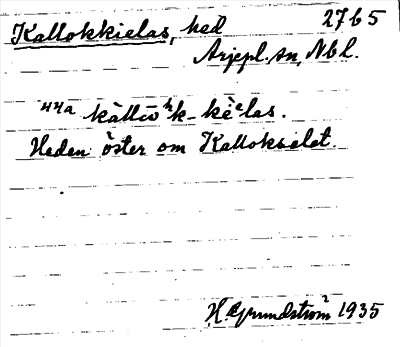 Kallokkielas, hed 2765
Arjepl. sn, Nbl.
44a kàllō ʰk-kèᵉlas.
Heden öster om Kallokselet.
H. Grundström 1935